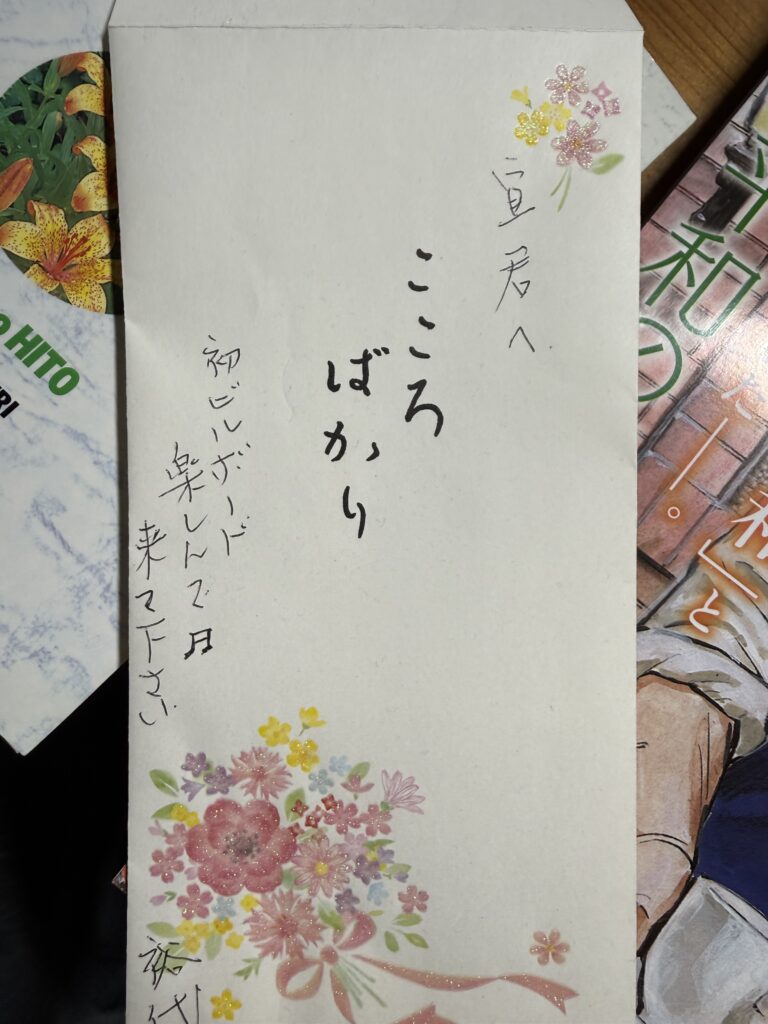 宣君へ
こころ
ばかり
初ビルボード
楽しんで♬
来て下さい
裕代
HITO
平和の
た――。
」と